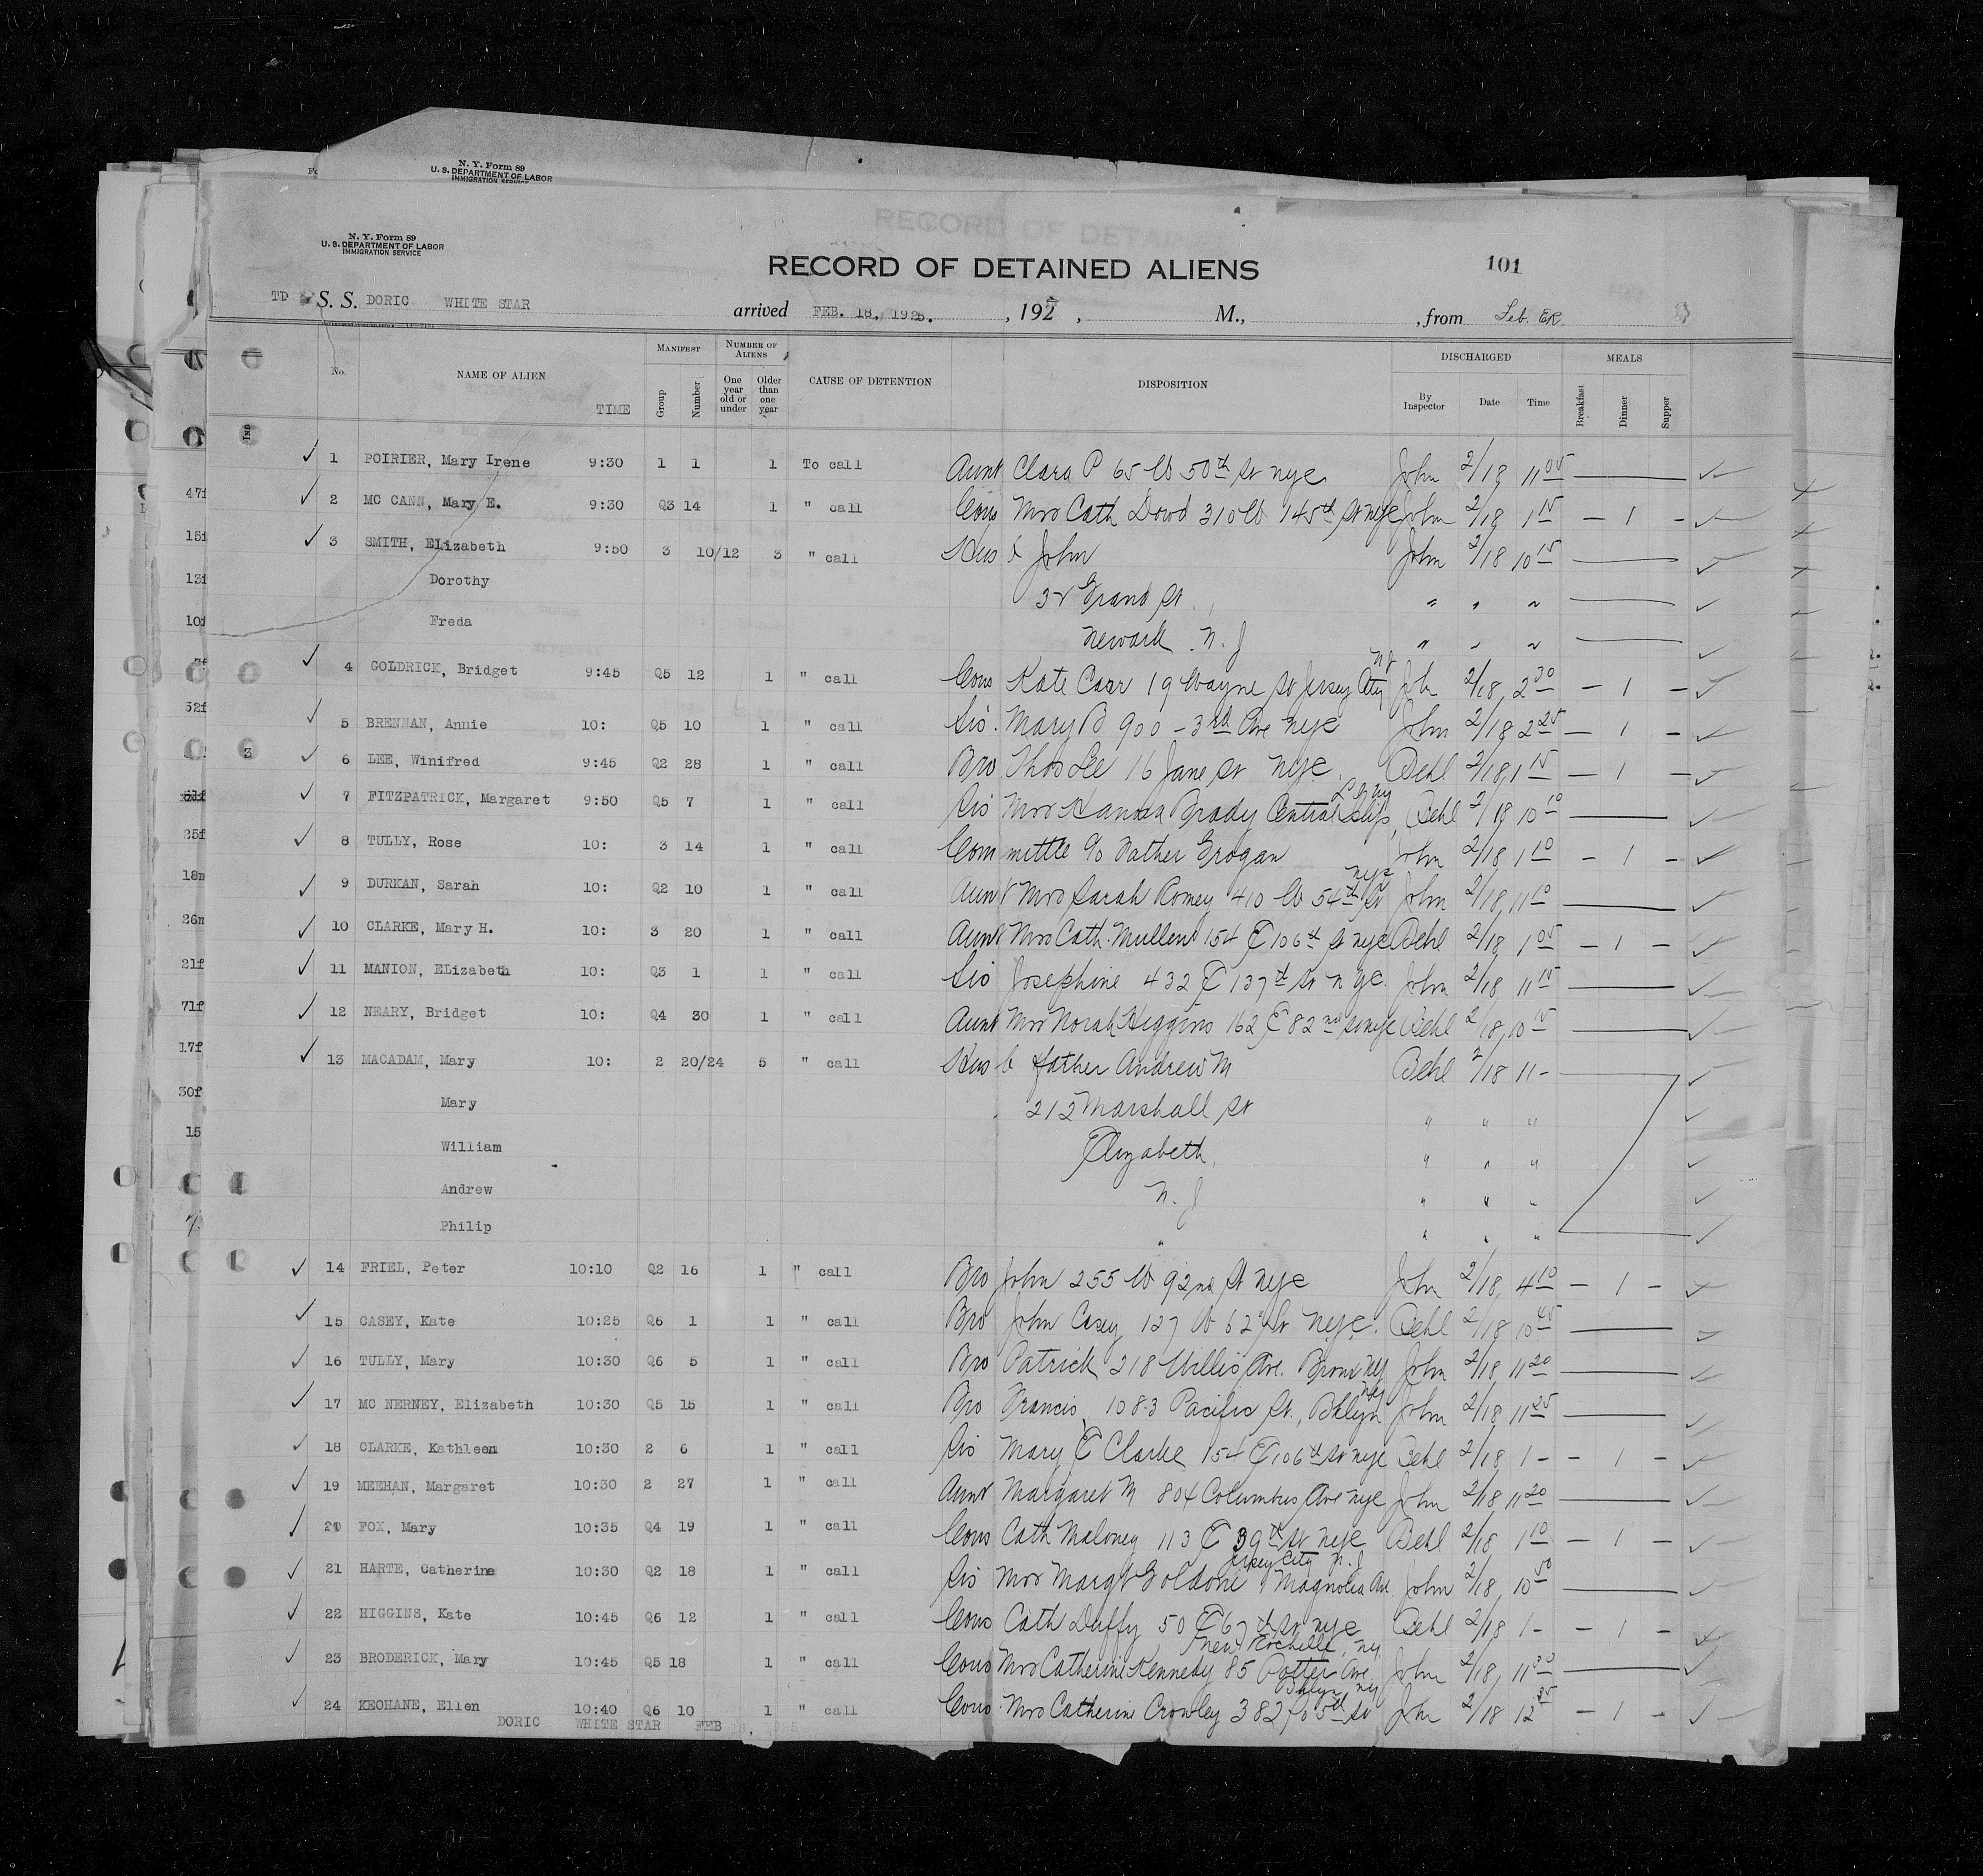 N. Y. Form 89
U. S. DEPARTMENT OF LABOR
IMMIGRATION SERVICE
N. Y. Form 89
U. S. DEPARTMENT OF LABOR
IMMIGRATION SERVICE
RECORD OF DETAINED ALIENS 101
TD S. S. DORIC WHITE STAR arrived FEB. 18, 1925. , 192 , M., , from
No. NAME OF ALIEN TIME MANIFEST Group Number NUMBER OF ALIENS One year old or under Older than one year CAUSE OF DETENTION DISPOSITION DISCHARGED By Inspector Date Time MEALS Breakfast Dinner Supper
1 POIRIER, Mary Irene 9:30 1 1 1 To call Aunt Clara P 65 W 50th St nyc John 2/18 11 05
2 MC CANN, Mary E. 9:30 Q3 14 1 " call Cous Mrs Cath Dowd 310 W 145th St nyc John 2/18 1 15 – 1 –
3 SMITH, ELizabeth 9:50 3 10/12 3 " call Husb John John 2/18 10 15
Dorothy Grand St. " " "
Freda Newark N. J " " "
4 GOLDRICK, Bridget 9:45 Q5 12 1 " call Cous Kate Carr 19 Wayne St Jersey City NJ John 2/18 2 30 – 1 –
5 BRENNAN, Annie 10: Q5 10 1 " call Sis. Mary B 900 - 3rd Ave nyc John 2/18 2 25 – 1 –
6 LEE, Winifred 9:45 Q2 28 1 " call Bro Thos Lee 16 Jane St nyc. Behl 2/18 1 15 – 1 –
7 FITZPATRICK, Margaret 9:50 Q5 7 1 " call Sis Mrs Hanna Brady Central Islip, Behl 2/18 10 10
8 TULLY, Rose 10: 3 14 1 " call Committee c/o Father Grogan John 2/18 1 10 – 1 –
9 DURKAN, Sarah 10: Q2 10 1 " call Aunt Mrs Sarah Romey 410 W 54th St nyc John 2/18 11 10
10 CLARKE, Mary H. 10: 3 20 1 " call Aunt Mrs Cath. Mullen 154 E 106th St nyc Behl 2/18 1 05 – 1 –
11 MANION, ELizabeth 10: Q3 1 1 " call Sis Josephine 432 E 137th St nyc. John 2/18 11 15
12 NEARY, Bridget 10: Q4 30 1 " call Aunt Mrs Norah Higgins 162 E 82nd St nyc Behl 2/18 10 15
13 MACADAM, Mary 10: 2 20/24 5 " call Husb father Andrew M Behl 2/18 11 -
Mary 212 Marshall St " " "
William Elizabeth, " " "
Andrew N. J " " "
Philip " " " "
14 FRIEL, Peter 10:10 Q2 16 1 " call Bro John 255 W 92nd St nyc John 2/18 4 10 – 1 –
15 CASEY, Kate 10:25 Q6 1 1 " call Bro John Casey 127 W 62 St nyc. Behl 2/18 10 45
16 TULLY, Mary 10:30 Q6 5 1 " call Bro Patrick 218 Willis Ave. Bronx NY John 2/18 11 20
17 MC NERNEY, Elizabeth 10:30 Q5 15 1 " call Bro Francis 1083 Pacific St., Bklyn ny John 2/18 11 25
18 CLARKE, Kathleen 10:30 2 6 1 " call Sis Mary E Clarke 154 E 106th St nyc Behl 2/18 1 - – 1 –
19 MEEHAN, Margaret 10:30 2 27 1 " call Aunt Margaret M 804 Columbus Ave nyc John 2/18 11 20
20 FOX, Mary 10:35 Q4 19 1 " call Cous Cath Maloney 113 E 39th St nyc Behl 2/18 1 10 – 1 –
21 HARTE, Catherine 10:30 Q2 18 1 " call Sis Mrs Margt Magnolia Ave Jersey City N. J John 2/18 10 50
22 HIGGINS, Kate 10:45 Q6 12 1 " call Cous Cath Duffy 50 E 67th St nyc Behl 2/18 1 - – 1 –
23 BRODERICK, Mary 10:45 Q5 18 1 " call Cous Mrs Catherine Kennedy 85 Potter Ave. New Rochelle, ny. John 2/18 11 30
24 KEOHANE, Ellen 10:40 Q6 10 1 " call Cous. Mrs Catherine Crowley 382 5th St Bklyn ny John 2/18 12 25 – 1 –
DORIC WHITE STAR FEB 18,